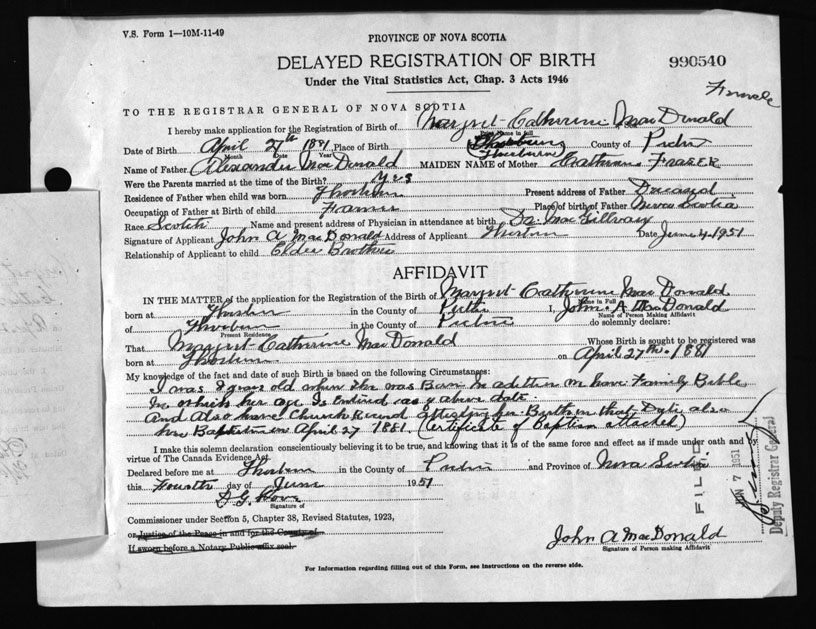 V.S. Form 1—10M-11-49
PROVINCE OF NOVA SCOTIA
DELAYED REGISTRATION OF BIRTH
990540
Under the Vital Statistics Act, Chap. 3 Acts 1946
Female
TO THE REGISTRAR GENERAL OF NOVA SCOTIA
I hereby make application for the Registration of Birth of Margret Catherine MacDonald
Print Name in full
Date of Birth April 27th 1881 Place of Birth Thorburn County of Pictou
Month Date Year
Name of Father Alexander MacDonald MAIDEN NAME of Mother Catherine FRASER
Were the Parents married at the time of the Birth? Yes
Residence of Father when child was born Thorburn Present address of Father Deceased
Occupation of Father at Birth of child Farmer Place of birth of Father Nova Scotia
Race Scotch Name and present address of Physician in attendance at birth Dr. MacGillvary
Signature of Applicant John A MacDonald Address of Applicant Thorburn Date June 4, 1951
Relationship of Applicant to child Elder Brother
AFFIDAVIT
IN THE MATTER of the application for the Registration of the Birth of Margret Catherine MacDonald
Name in Full
born at Thorburn in the County of Pictou I, John A MacDonald
Name of Person Making Affidavit
of Thorburn in the County of Pictou do solemnly declare:
Present Residence
That Margret Catherine MacDonald Whose Birth is sought to be registered was
born at Thorburn on April 27th 1881
My knowledge of the fact and date of such Birth is Based on the following Circumstances:
I was 8 years old when she was Born In addition we have Family Bible
In which her age Is Entered as of above date.
And Also have Church Record attesting her Birth on that Date also
her Baptism on April 27 1881. (Certificate of Baptism attached)
I make this solemn declaration conscientiously believing it to be true, and knowing that it is of the same force and effect as if made under oath and by
virtue of The Canada Evidence Act.
Declared before me at Thorburn in the County of Pictou and Province of Nova Scotia
this Fourth day of June 1951
Signature of
Commissioner under Section 5, Chapter 38, Revised Statutes, 1923,
or Justice of the Peace in and for the County of
If sworn before a Notary Public affix seal.
John A MacDonald
Signature of Person making Affidavit
FILED
JUN 7 1951
Deputy Registrar General
For Information regarding filling out of this Form, see instructions on the reverse side.